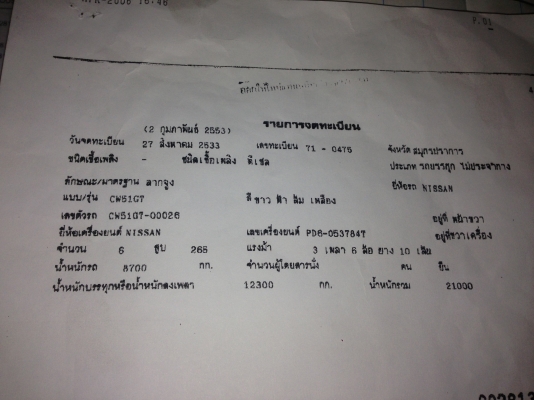 -2006 16:48
P.01
(2 กุมภาพันธ์ 2553) รายการจดทะเบียน
วันจดทะเบียน 27 สิงหาคม 2533 เลขทะเบียน 71-0475 จังหวัด สมุทรปราการ
ชนิดเชื้อเพลิง - ชนิดเชื้อเพลิง ดีเซล ประเภท รถบรรทุก ไม่ประจำทาง
ลักษณะ/มาตรฐาน ลากจูง ยี่ห้อรถ NISSAN
แบบ/รุ่น CW51G7 สี ขาว ฟ้า ส้ม เหลือง
เลขตัวรถ CW51G7-00026 อยู่ที่ หน้าขวา
ยี่ห้อเครื่องยนต์ NISSAN เลขเครื่องยนต์ PD6-053784T อยู่ที่ขวาเครื่อง
จำนวน 6 สูบ 265 แรงม้า 3 เพลา 6 ล้อ ยาง 10 เส้น
น้ำหนักรถ 8700 กก. จำนวนผู้โดยสารนั่ง คน ยืน
น้ำหนักบรรทุกหรือน้ำหนักลงเพลา 12300 กก. น้ำหนักรวม 21000